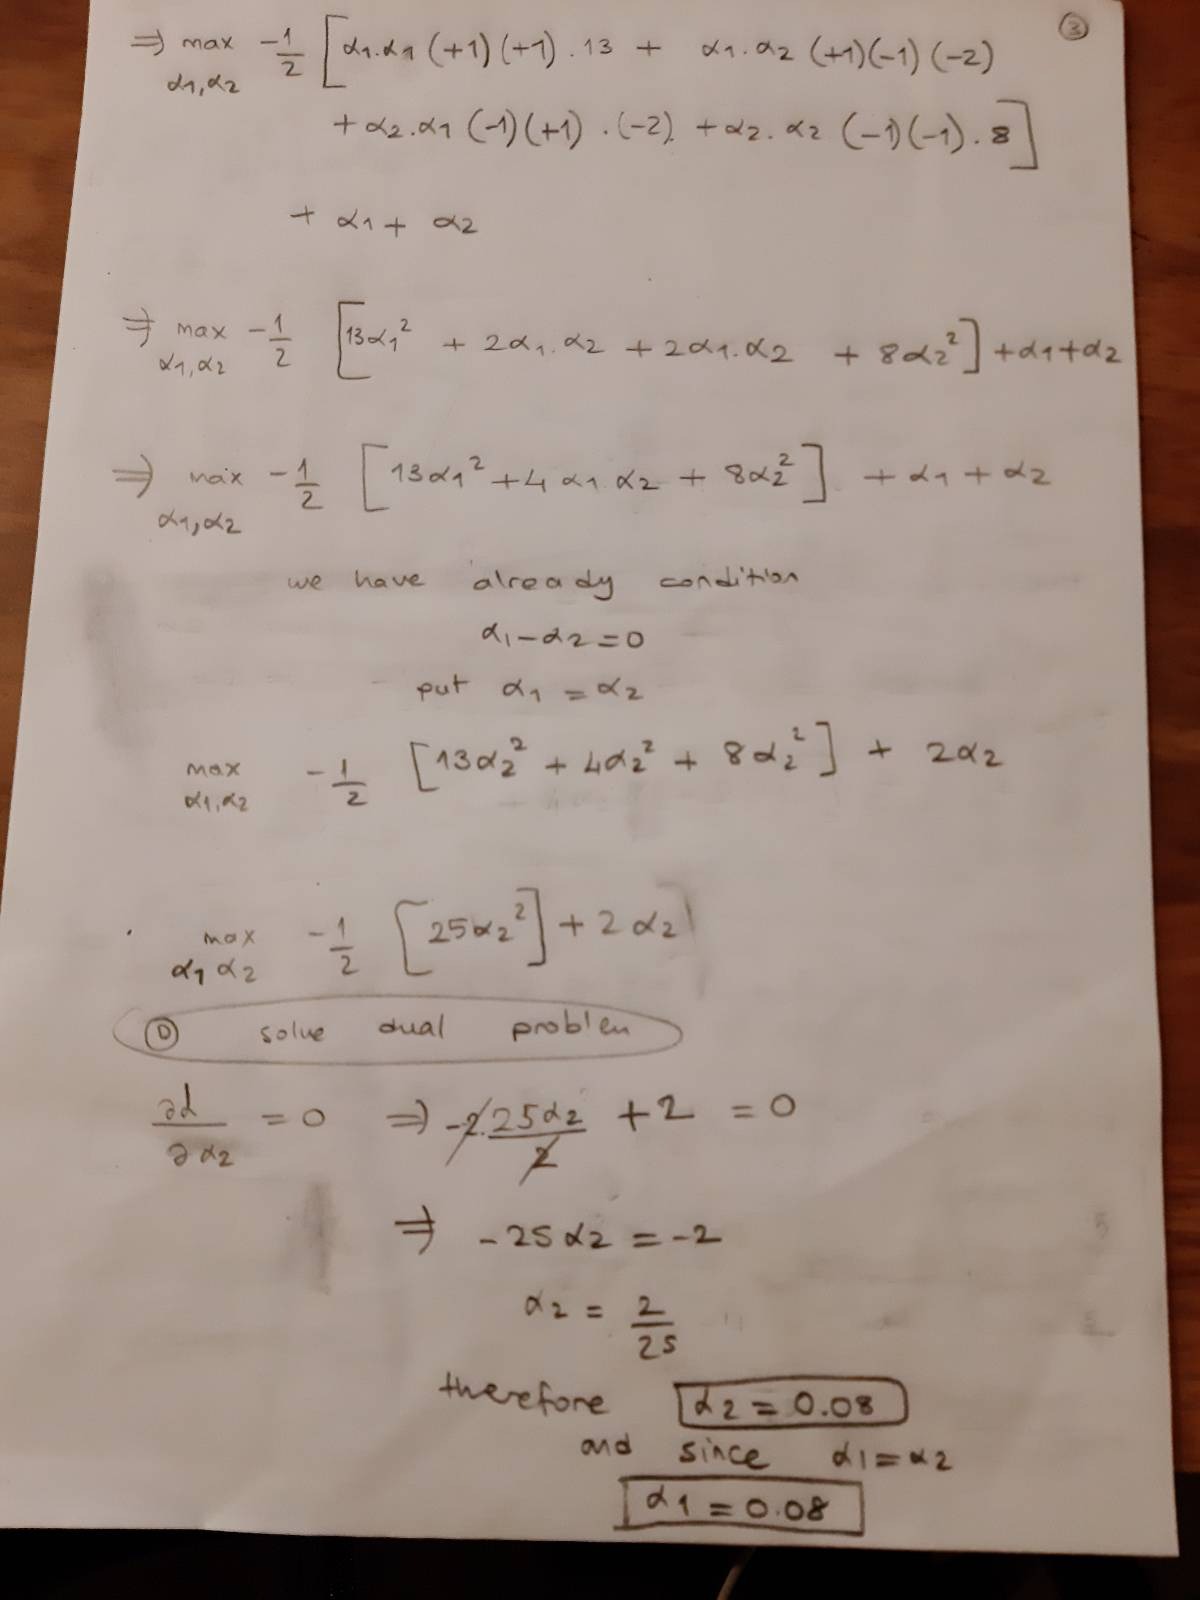 ③
⇒ max -1/2 [α1.α1 (+1)(+1) . 13 + α1.α2 (+1)(-1)(-2)
α1,α2
+ α2.α1 (-1)(+1) . (-2) + α2. α2 (-1)(-1) . 8]
+ α1 + α2
⇒ max -1/2 [13α1² + 2α1.α2 + 2α1.α2 + 8α2²] + α1 + α2
α1,α2
⇒ max -1/2 [13α1² + 4 α1 α2 + 8α2²] + α1 + α2
α1,α2
we have already condition
α1 - α2 = 0
put α1 = α2
max -1/2 [13α2² + 4α2² + 8α2²] + 2α2
α1,α2
max -1/2 [25α2²] + 2α2
α1 α2
Ⓓ solve dual problem
∂L/∂α2 = 0 ⇒ -2.25α2/2 + 2 = 0
⇒ -25α2 = -2
α2 = 2/25
therefore α2 = 0.08
and since α1 = α2
α1 = 0.08